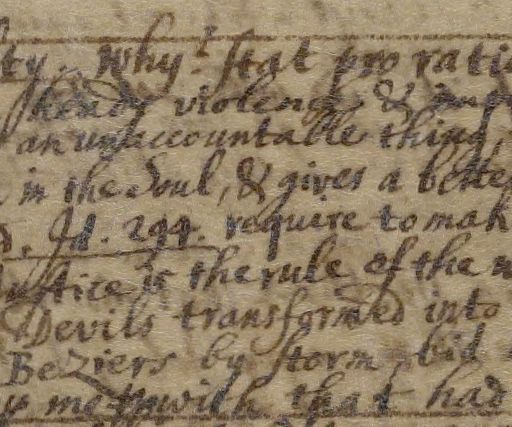 ty. Why? stat pro ratio
heady violence &
an unaccountable thing,
in the Soul, & gives a better
Id. 294. require to mak
justice is the rule of the
Devils transformed into
Beziers by storm, bid
men with that had